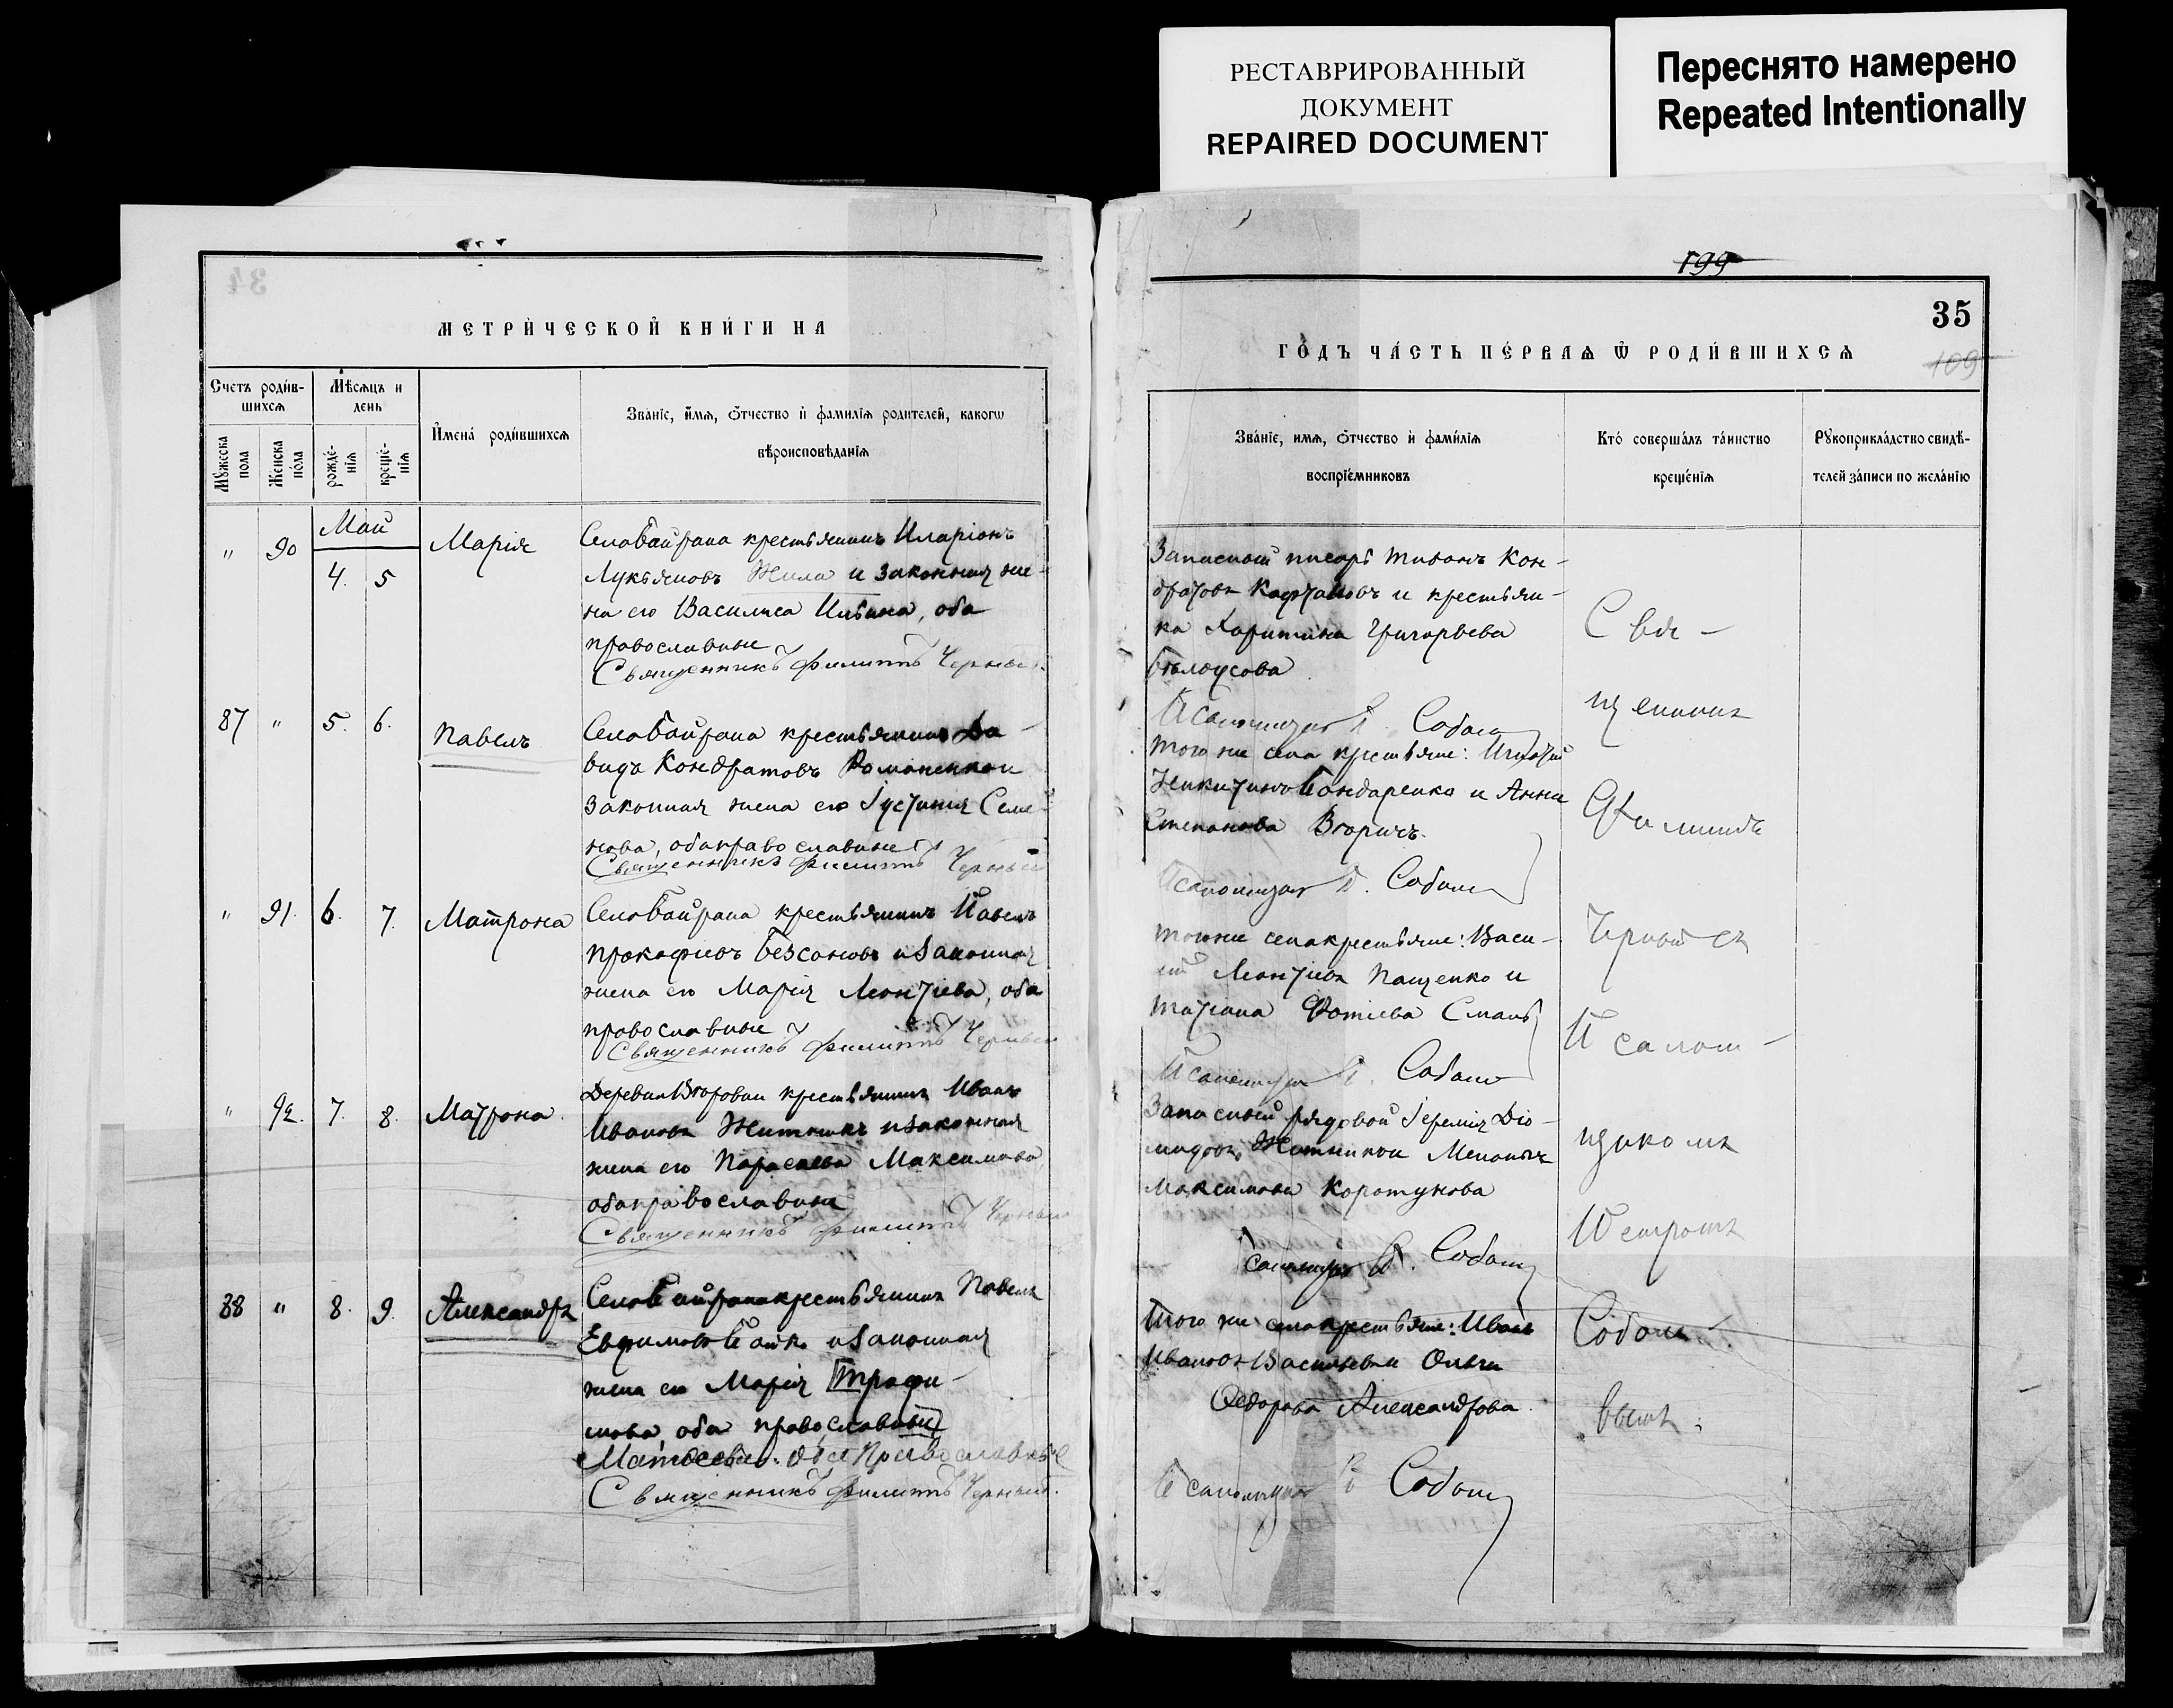 РЕСТАВРИРОВАННЫЙ
ДОКУМЕНТ
REPAIRED DOCUMENT
Переснято намерено
Repeated Intentionally
34
МЕТРИ́ЧЕСКОЙ КНИ́ГИ НА
Счетъ роди́в-
шихсѧ
Мѣсѧцъ и
день
Мꙋ́жеска
пола
Же́нска
по́ла
рожде́-
нїѧ
креще́-
нїѧ
И҆мена́ роди́вшихсѧ
Зва́нїе, и҆́мѧ, ѻ҆́тчество и҆ фами́лїѧ роди́телей, какогѡ
вѣроисповѣ́данїѧ
Май
" 90 4. 5 Марія
Села Байрака крестьянинъ Иларіонъ
Лукьяновъ Жила и законная же-
на его Василиса Ильина, оба
православные
Священникъ Филиппъ Черный.
87 " 5. 6. Павелъ
Села Байрака крестьянинъ Да-
видъ Кондратовъ Романенко и
законная жена его Іустинія Семе-
нова, оба православные
Священникъ Филиппъ Черный
" 91. 6. 7. Матрона
Села Байрака крестьянинъ Павелъ
Прокофіевъ Безсоновъ и законная
жена его Марія Леонтіева, оба
православные
Священникъ Филиппъ Черный
" 92. 7. 8. Матрона.
Деревни Второвки крестьянинъ Иванъ
Ивановъ Житникъ и законная
жена его Параскева Максимова
оба православные
Священникъ Филиппъ Черный
88 " 8. 9. Александръ
Села Байрака крестьянинъ Павелъ
Евфимовъ и законная
жена его Марія Трофи-
мова, оба православные
Матѳеева. Оба Православные
Священникъ Филиппъ Черный.
199
35
109
ГО́ДЪ ЧА́СТЬ ПЕ́РВАѦ Ѿ РОДИ́ВШИХСѦ
Зва́нїе, имѧ, ѻ҆́тчество и҆ фами́лїѧ
воспрїе́мниковъ
Кто́ соверша́лъ та́инство
креще́нїѧ
Рꙋкоприкла́дство свидѣ́-
телей за́писи по жела́нїю
Запасный писарь Тихонъ Кон-
дратовъ Кафтановъ и крестьян-
ка Харитина Григорьева
Бѣлоусова
Псаломщикъ П. Соболь
Того же села крестьяне: Игнатій
Никитинъ Бондаренко и Анна
Степанова Вторичъ.
Псаломщикъ П. Соболь
Того же села крестьяне: Васи-
лій Леонтіевъ Пащенко и
Татіана Фотіева Смаль
Псаломщикъ П. Соболь
Запасный рядовой Іеремія Діо-
мидовъ Житникъ и Меланія
Максимова Коротунова
Псаломщикъ П. Соболь
Того же села крестьяне: Иванъ
Ивановъ Васильевъ и Ольга
Ѳедорова Александрова.
Псаломщикъ П. Соболь
Свя-
щенникъ
Филиппъ
Черный съ
Псалом-
щикомъ
Петромъ
Соболе-
вымъ.